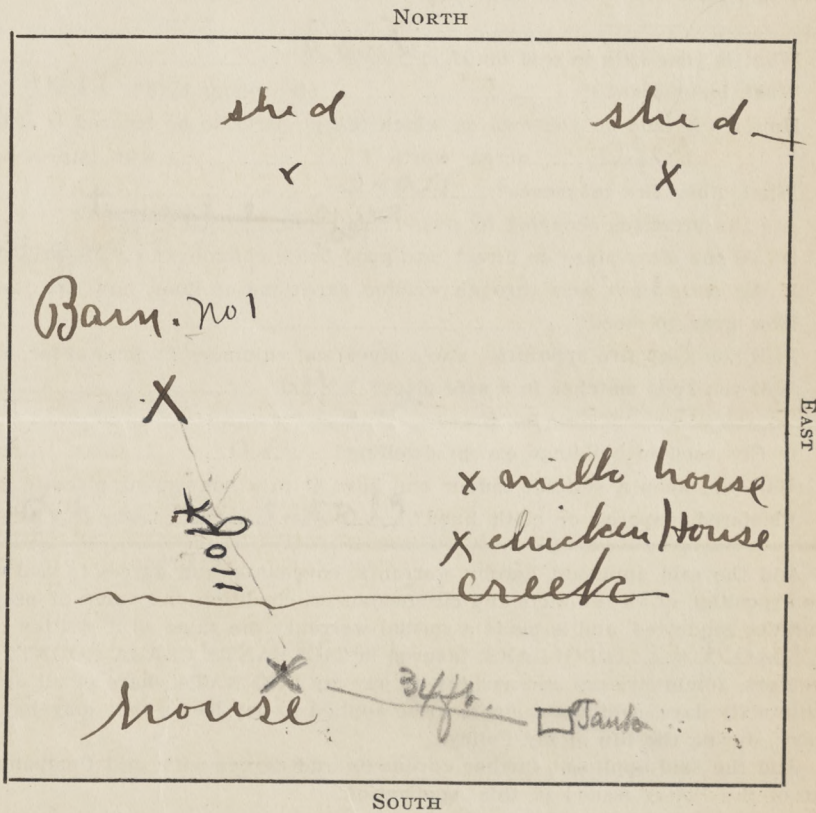 NORTH
shed shed
x X
Barn. no 1
X
EAST
x milk house
110 ft
x chicken House
creek
X
house 34 ft. Tank
SOUTH